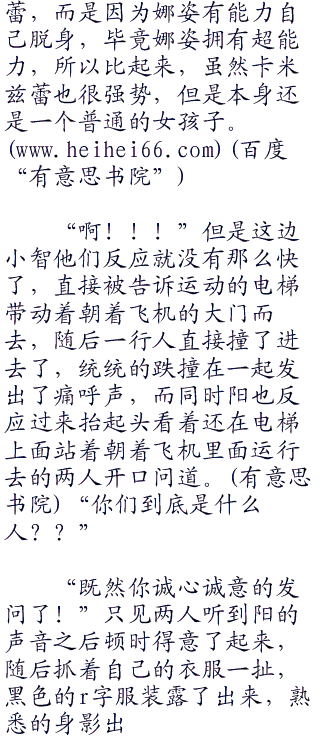 蕾，而是因为娜姿有能力自
己脱身，毕竟娜姿拥有超能
力，所以比起来，虽然卡米
兹蕾也很强势，但是本身还
是一个普通的女孩子。
(www.heihei66.com)(百度
“有意思书院”)
“啊！！！”但是这边
小智他们反应就没有那么快
了，直接被告诉运动的电梯
带动着朝着飞机的大门而
去，随后一行人直接撞了进
去了，统统的跌撞在一起发
出了痛呼声，而同时阳也反
应过来抬起头看着还在电梯
上面站着朝着飞机里面运行
去的两人开口问道。(有意思
书院)“你们到底是什么
人？？”
“既然你诚心诚意的发
问了！”只见两人听到阳的
声音之后顿时得意了起来，
随后抓着自己的衣服一扯，
黑色的r字服装露了出来，熟
悉的身影出